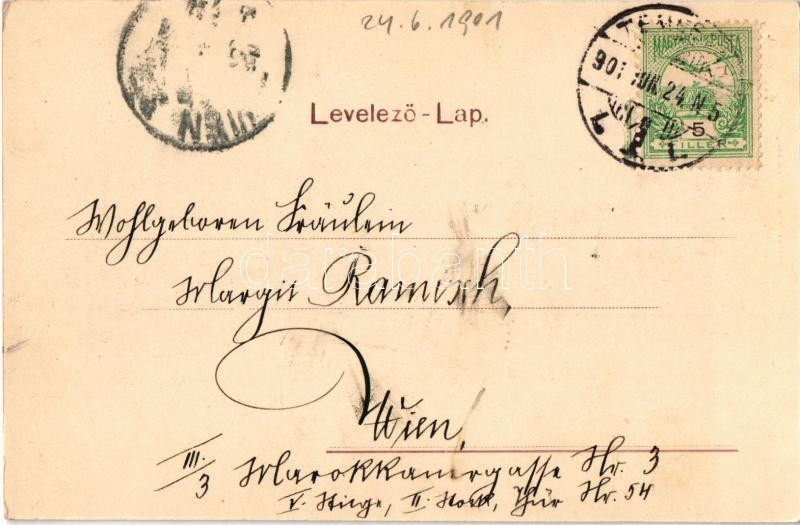 24.6.1901
WIEN
MAGYAR KIR. POSTA
901 JUN. 24. N 5
5
FILLÉR
Levelező-Lap.
Wohlgeboren Fräulein
Margit Ramisch,
darabanth
Wien,
III/3 Marokkanergasse Nr. 3
V. Stiege, II. Stock, Thür Nr. 54